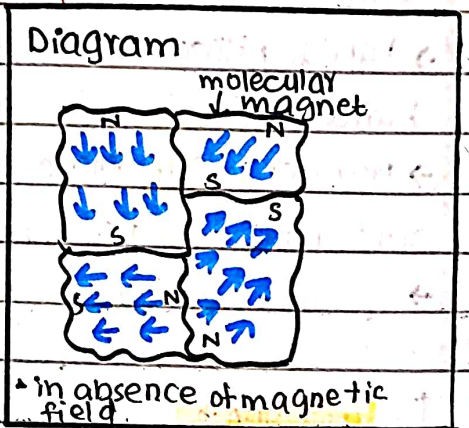 Diagram
molecular
magnet
N
N
S
S
S
S
N
N
* in absence of magnetic
field.